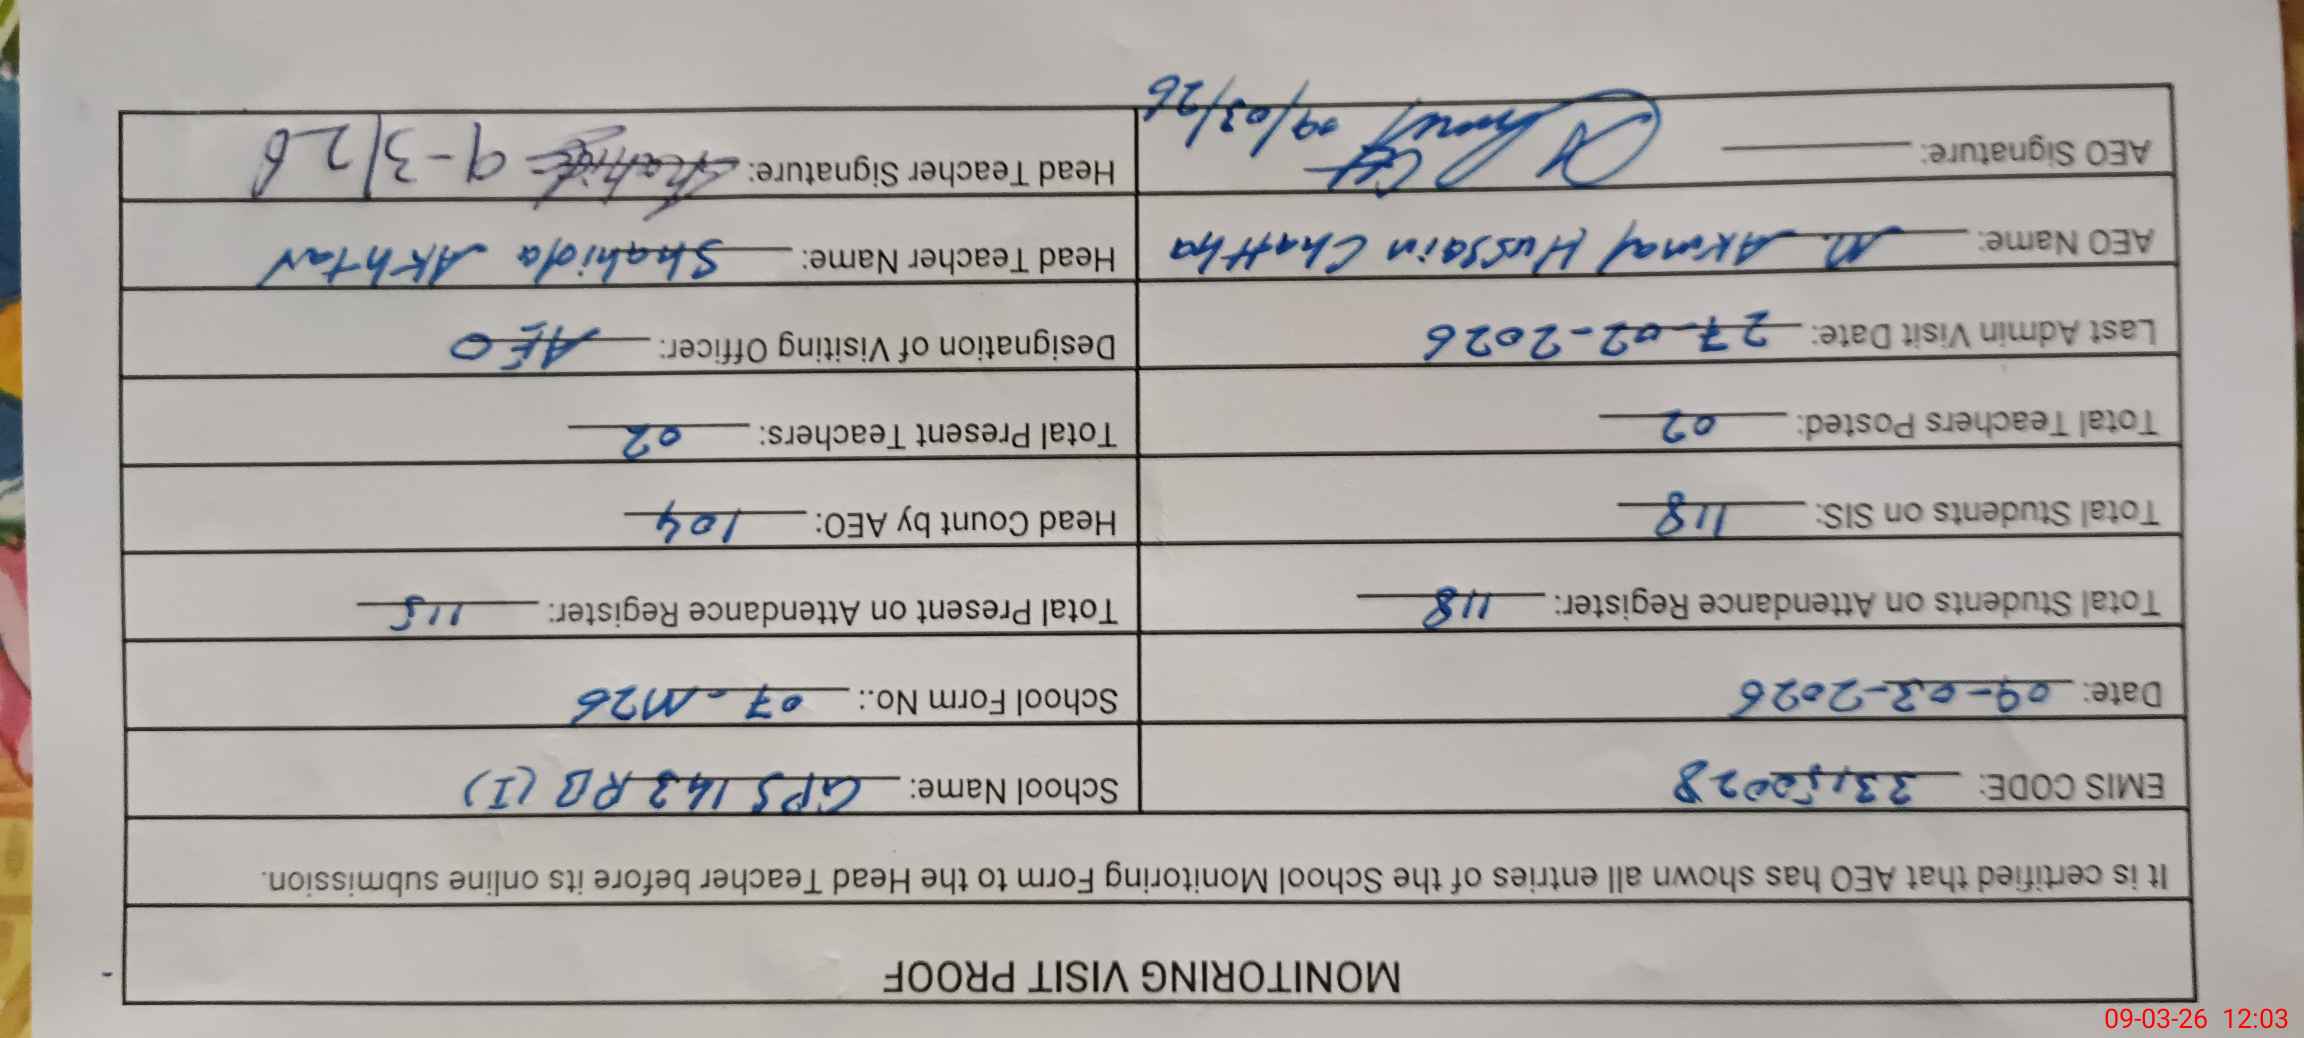 MONITORING VISIT PROOF
It is certified that AEO has shown all entries of the School Monitoring Form to the Head Teacher before its online submission.
EMIS CODE: 33150028
School Name: GPS 143 RB (I)
Date: 09-03-2026
School Form No.: 07-M26
Total Students on Attendance Register: 118
Total Present on Attendance Register: 115
Total Students on SIS: 118
Head Count by AEO: 104
Total Teachers Posted: 02
Total Present Teachers: 02
Last Admin Visit Date: 27-02-2026
Designation of Visiting Officer: AEO
AEO Name: M. Akmal Hussain Chattha
Head Teacher Name: Shahida Akhtar
AEO Signature: 09/03/26
Head Teacher Signature: 9-3/26
09-03-26 12:03